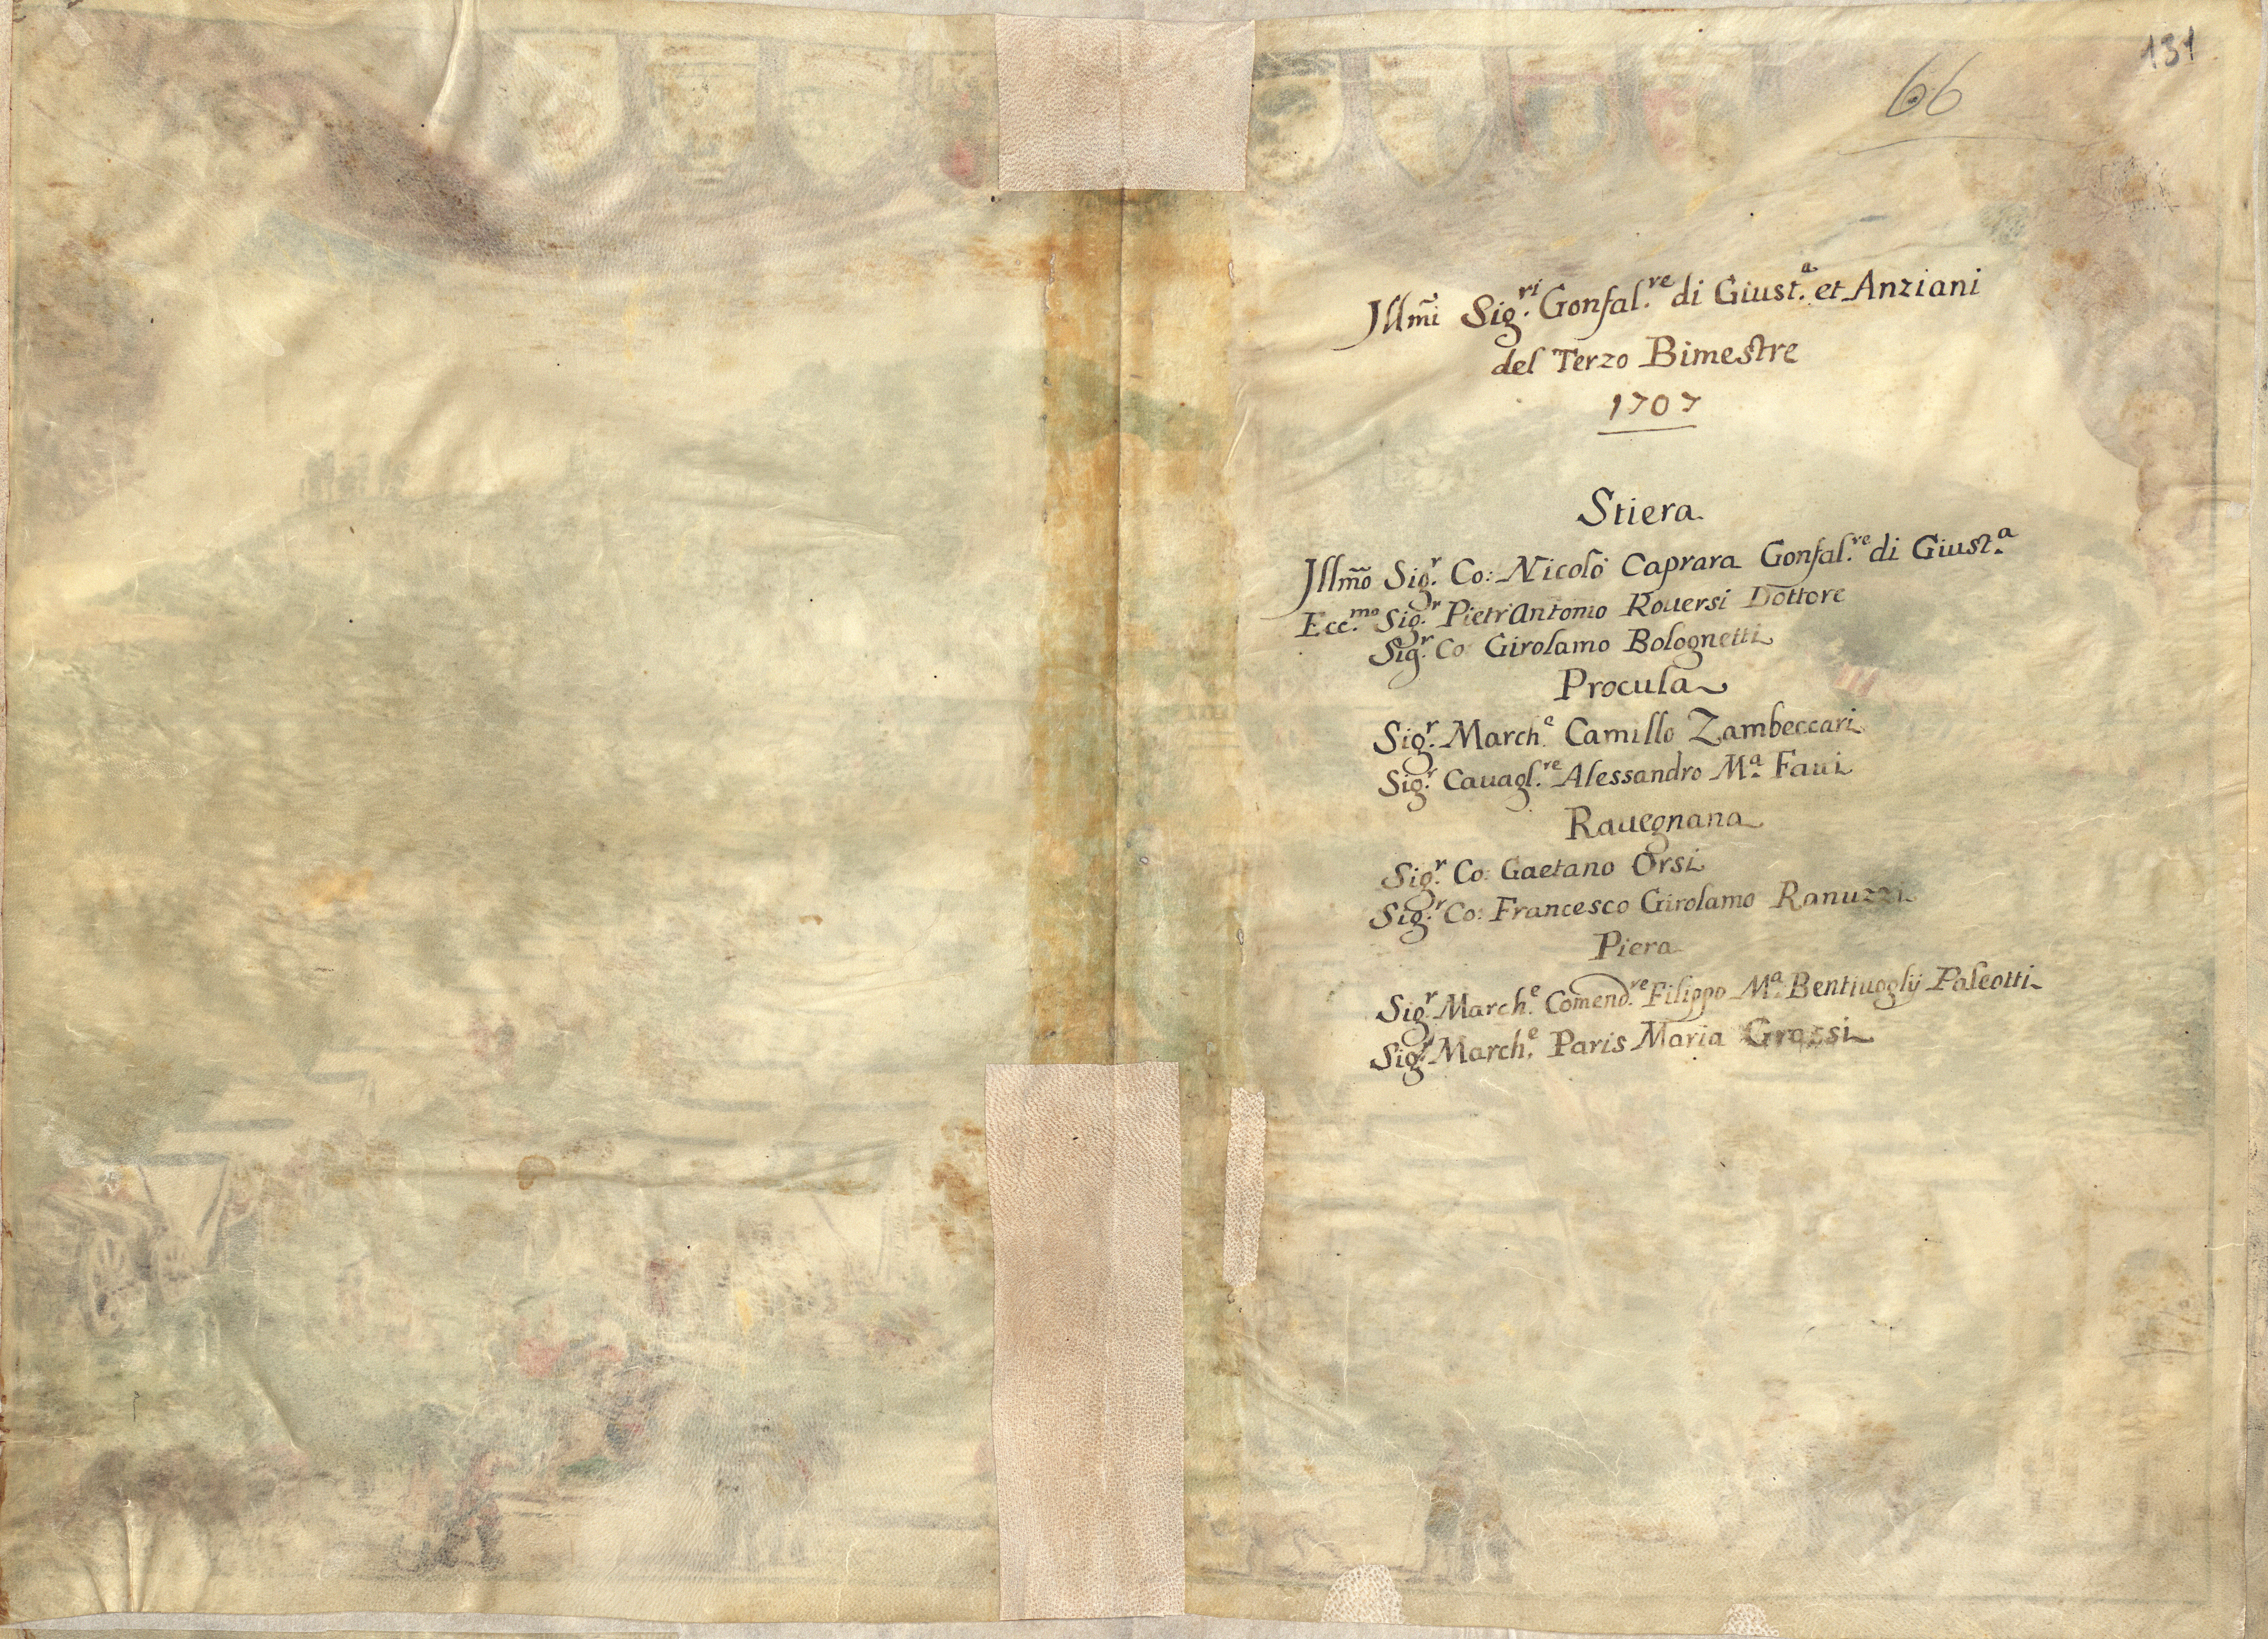 131
66
Jllm̃i Sig.ri Gonfal.re di Giust.a et Anziani
del Terzo Bimestre
1707
Stiera
Jllm̃o Sig.r Co: Nicolò Caprara Gonfal.re di Giust.a
Ecc.mo Sig.r Pietr'Antonio Rouersi Dottore
Sig.r Co: Girolamo Bolognetti
Procula
Sig.r March.e Camillo Zambeccari
Sig.r Cauagl.re Alessandro M.a Faui
Rauegnana
Sig.r Co: Gaetano Orsi
Sig.r Co: Francesco Girolamo Ranuzzi
Piera
Sig.r March.e Comend.re Filippo M.a Bentiuoglij Paleotti
Sig.r March.e Paris Maria Grassi